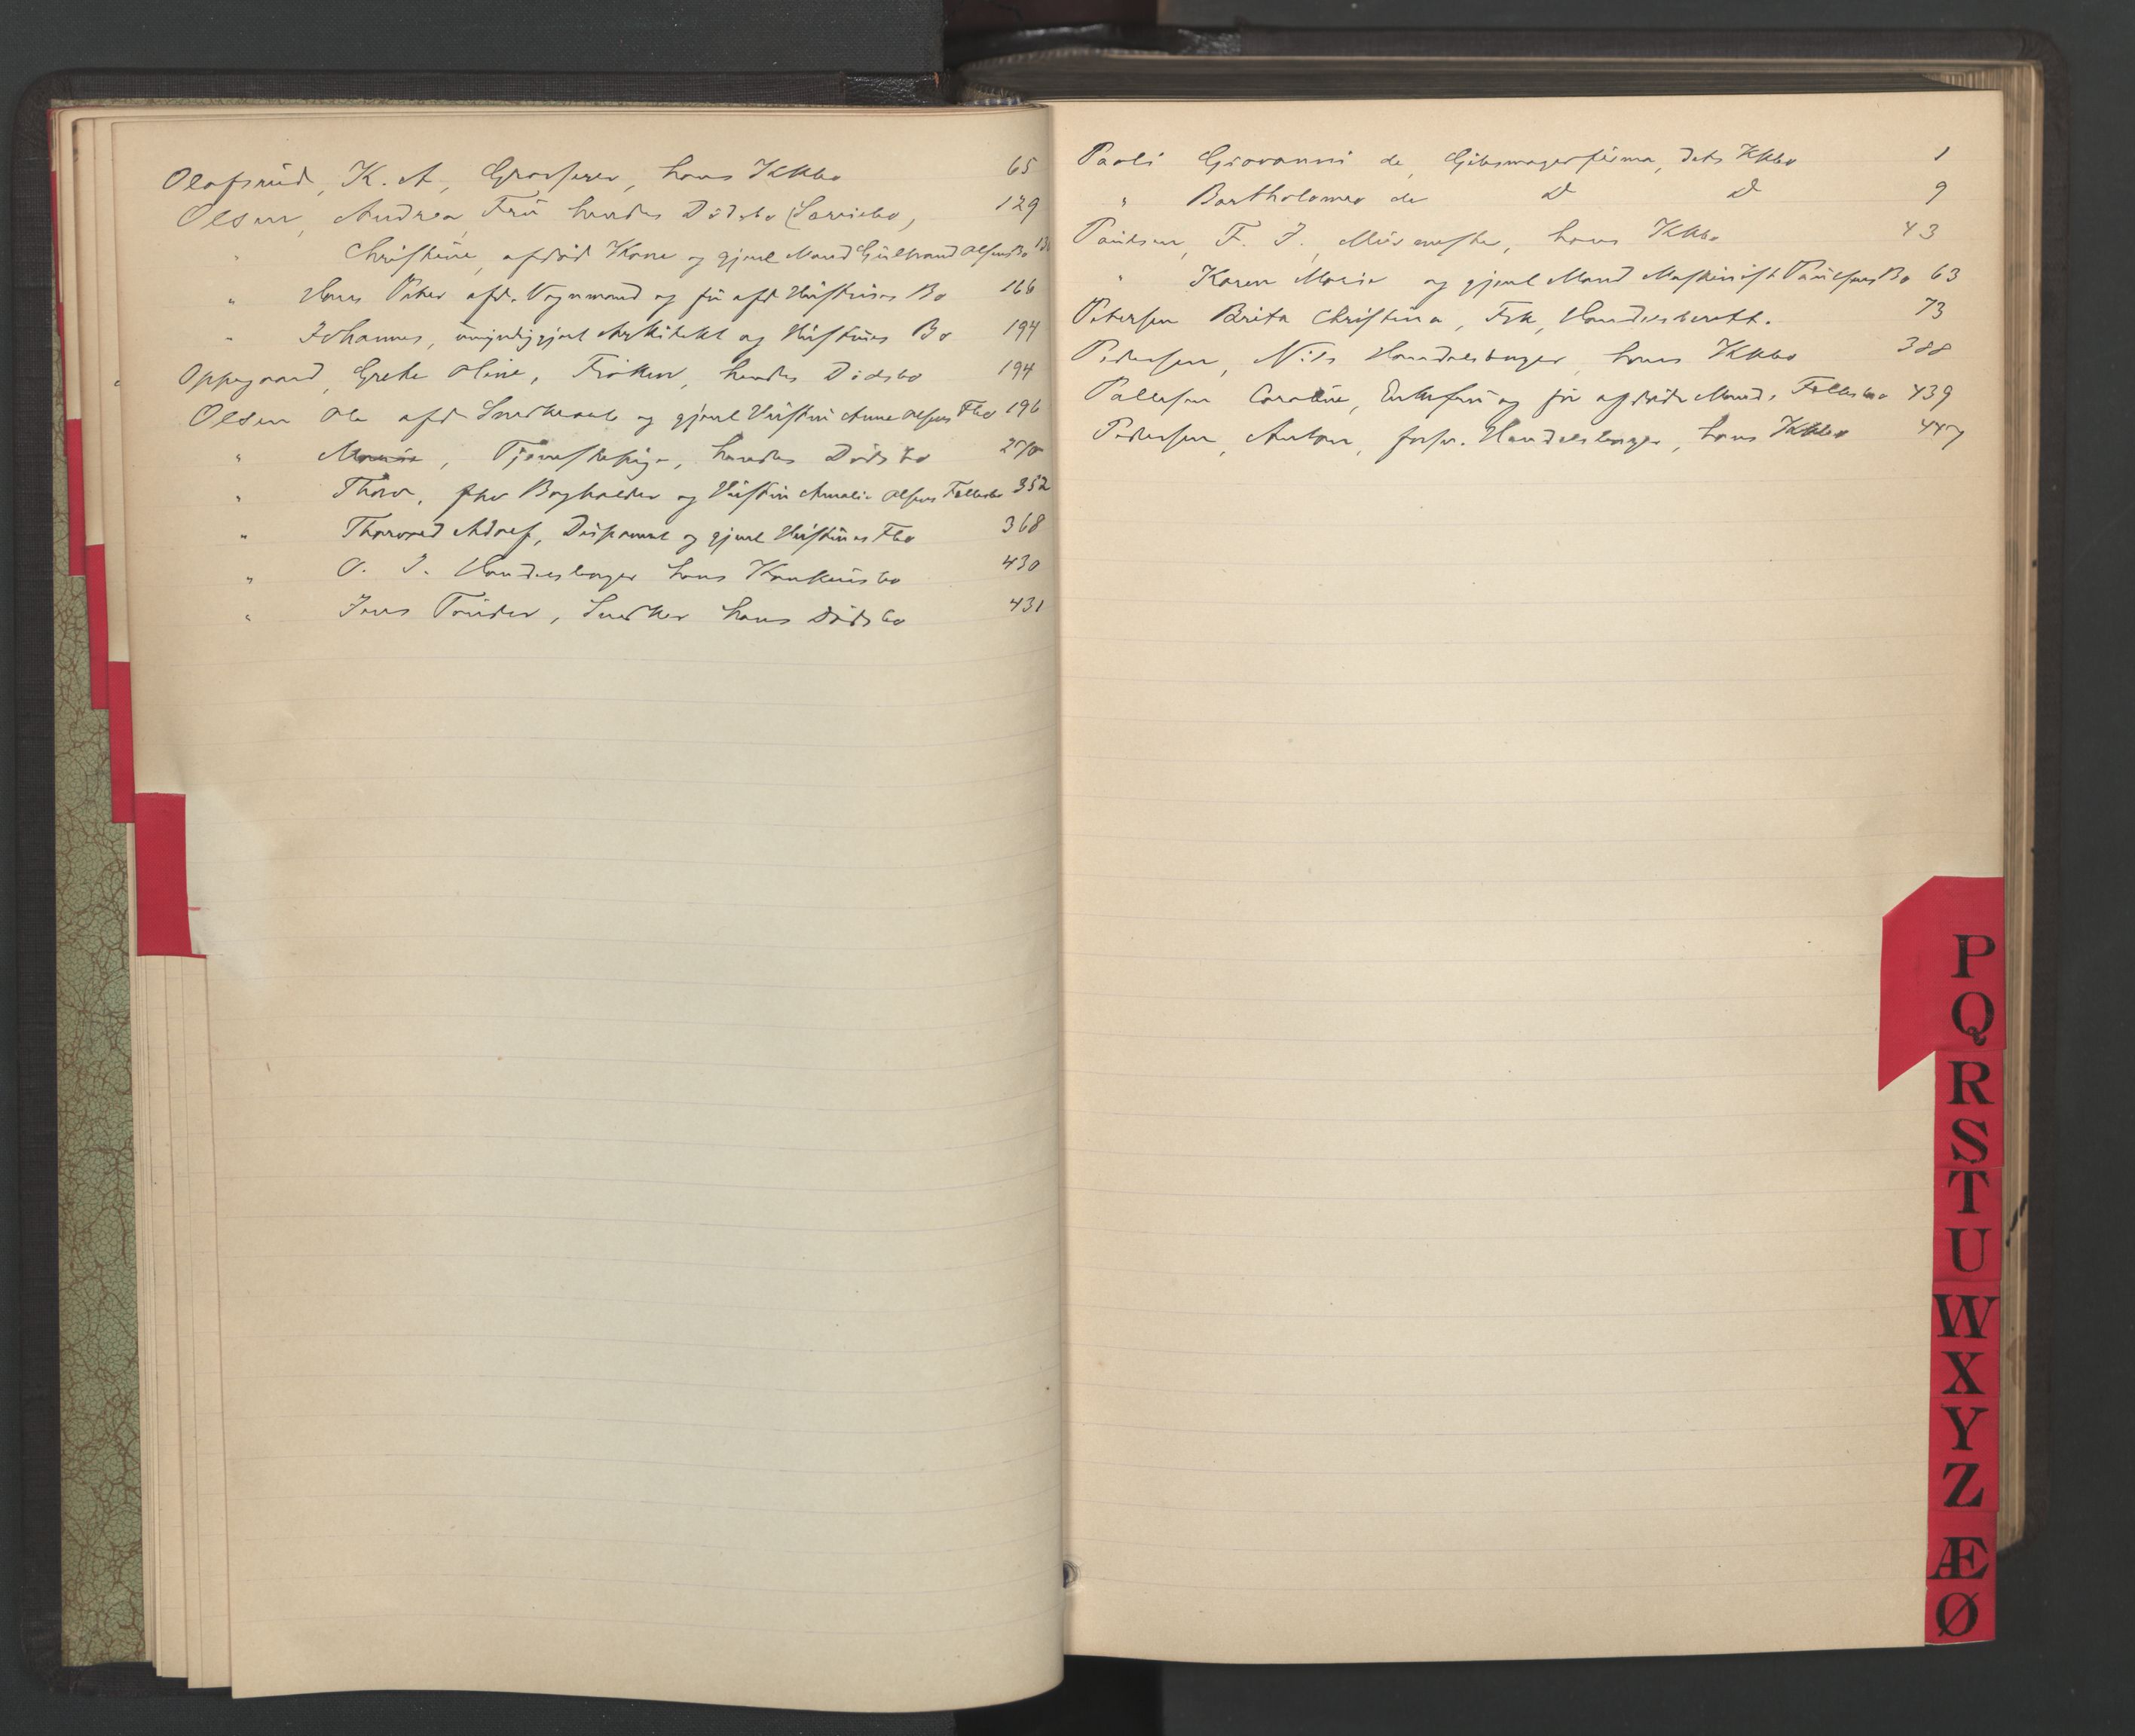 Olafsrud, K. A., Grosserer, hans Kkbo 65
Olsen, Andrea Frü hendes Dödsbo (Særiebo, 129
" Christine, afdöd Kone og gjenl Mand Gülbrand Olsens Bo 13
" Hans Peter afd. Vognmand og før afd Hüstrües Bo 166
" Johannes, ümyndiggjort Arkitekt og Hüstrües Bo 194
Oppegaard, Grethe Oline, Fröken, hendes Dödsbo 194
Olsen Ole afd Snedker og gjenl Hüstrü Anne Olsens Fbo 196
" , Tjenestepige, hendes Dödsbo
" Thorv. fhv Bogholder og Hüstrü Amalie Olsens Fællesbo 352
" Thorvald Adolf, Disponent og gjenl Hüstrües Fbo 368
" O. J. Handelsborger hans Konkürsbo 430
" Jens Tønder, Snedker hans Dödsbo 431
Paoli Giovanni de, Gibsmagerfirma, dets Kkbo 1
" Bartholomeo de D D 9
Paulsen, F. J., Mürmester, hans Kkbo 43
" Karen Marie og gjenl Mand Maskinist Paülsens Bo 63
Petersen Brita Christina, Frk, Handelsberett. 73
Pedersen, Nils Handelsborger, hans Kkbo 388
Pallesen Caroline, Enkefrü og før afdöde Mands Fællesbo 439
Pedersen, Anton, forsv. Handelsborger, hans Kkbo 447
P
Q
R
S
T
U
W
X
Y
Z
Æ
Ø